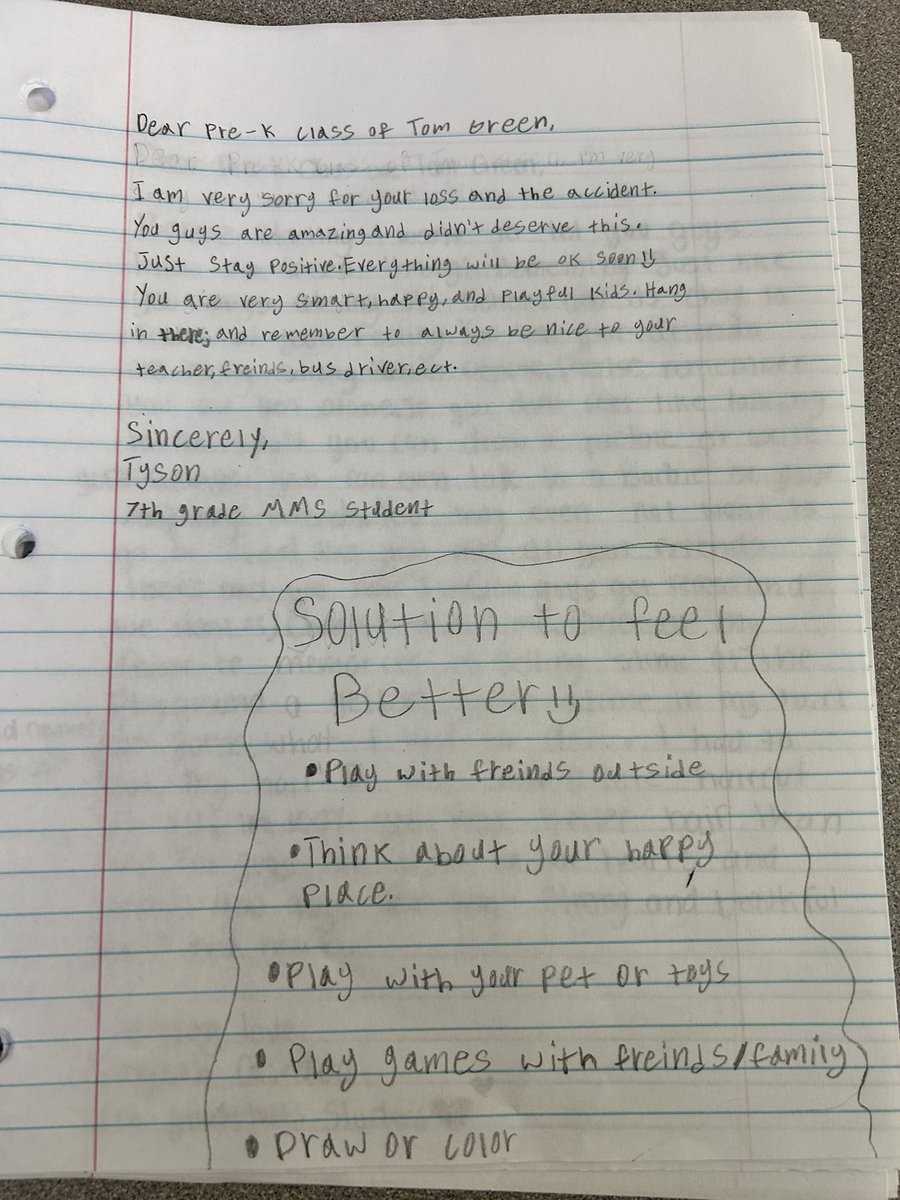 Dear Pre-K class of Tom Green,
I am very sorry for your loss and the accident.
You guys are amazing and didn't deserve this.
Just stay positive. Everything will be ok soon!!
You are very smart, happy, and playful kids. Hang
in there; and remember to always be nice to your
teacher, freinds, bus driver, ect.
Sincerely,
Tyson
7th grade MMS student
Solution to feel
Better!!
• Play with freinds outside
• Think about your happy
place.
• Play with your pet or toys
• Play games with freinds/family
• Draw or color